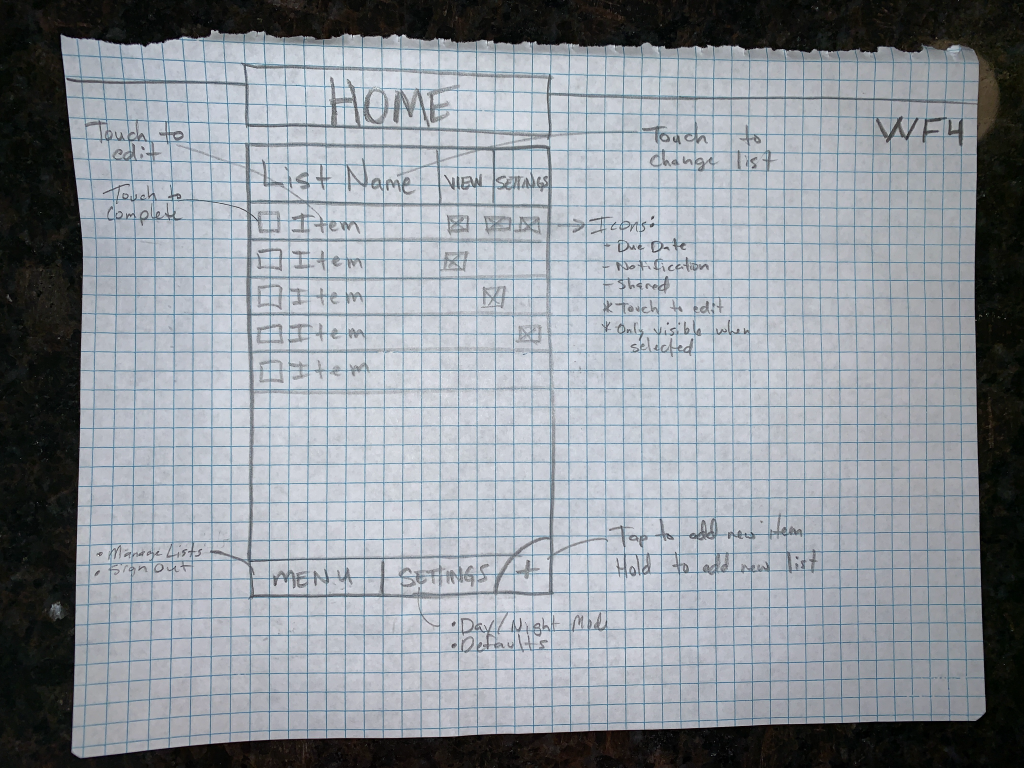 HOME
WF4
Touch to
edit
Touch to
change list
List Name
VIEW
SETINGS
Touch to
complete
Item
Item
Item
Item
Item
Icons:
- Due Date
- Notification
- Shared
* Touch to edit
* Only visible when
selected
• Manage Lists
• Sign Out
MENU
SETTINGS
+
Tap to add new item
Hold to add new list
• Day/Night Mode
• Defaults